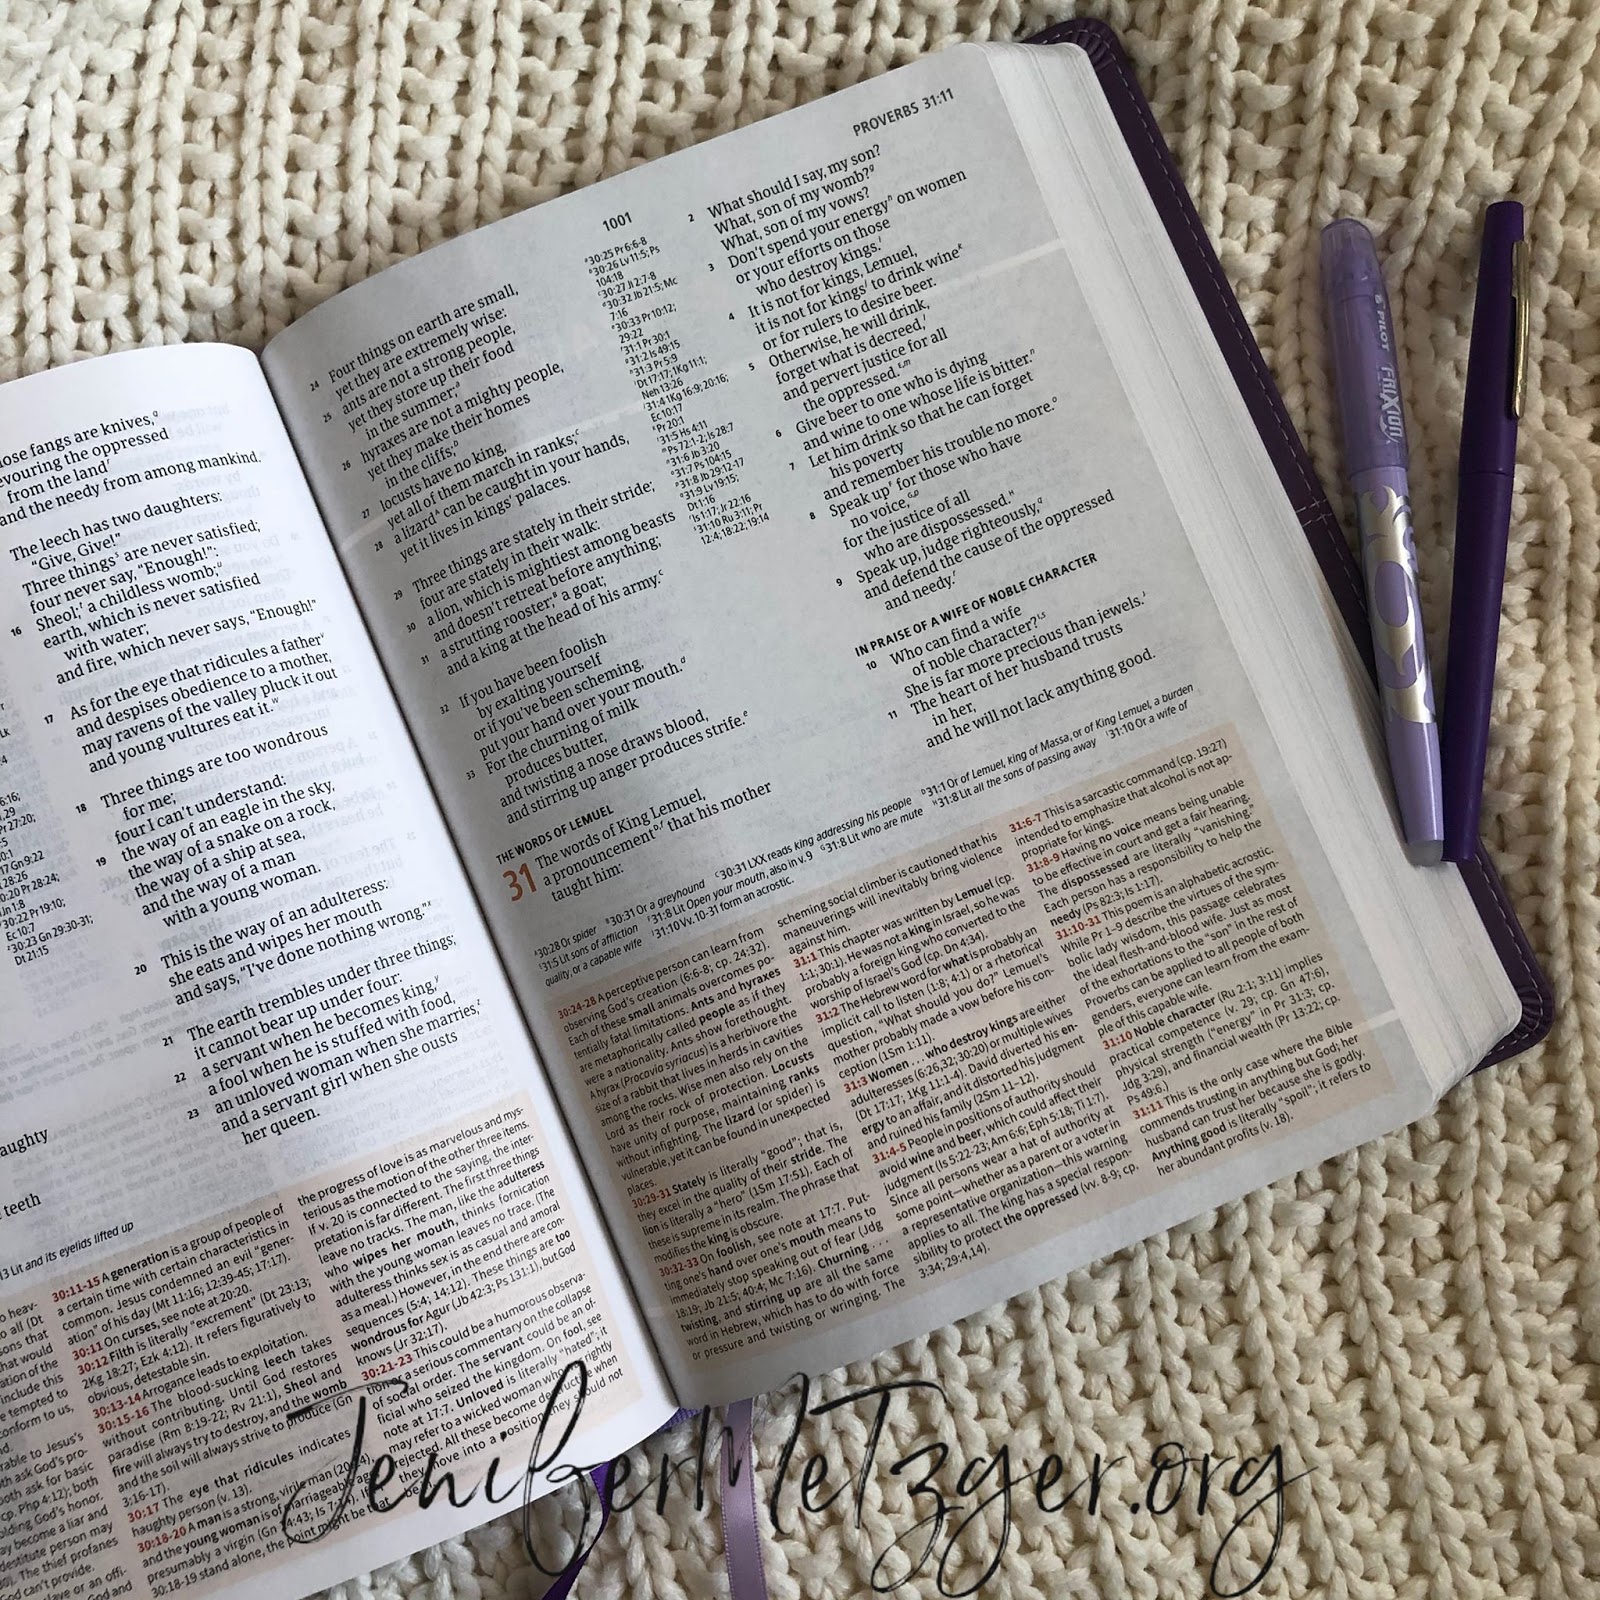 lose fangs are knives,q
evouring the oppressed
from the landr
and the needy from among mankind.
The leech has two daughters:
"Give, Give!"
Three thingss are never satisfied;
four never say, "Enough!":
16 Sheol;t a childless womb;u
earth, which is never satisfied
with water;
and fire, which never says, "Enough!"
17 As for the eye that ridicules a fatherv
and despises obedience to a mother,
may ravens of the valley pluck it out
and young vultures eat it.w
18 Three things are too wondrous
for me;
four I can't understand:
19 the way of an eagle in the sky,
the way of a snake on a rock,
the way of a ship at sea,
and the way of a man
with a young woman.
20 This is the way of an adulteress:
she eats and wipes her mouth
and says, "I've done nothing wrong."x
21 The earth trembles under three things;
it cannot bear up under four:
22 a servant when he becomes king,y
a fool when he is stuffed with food,
23 an unloved woman when she marries,z
and a servant girl when she ousts
her queen.
aughty
teeth
13 Lit and its eyelids lifted up
30:11-15 A generation is a group of people of
a certain time with certain characteristics in
common. Jesus condemned an evil "gener-
ation" of his day (Mt 11:16; 12:39-45; 17:17).
30:11 On curses, see note at 20:20.
30:12 Filth is literally "excrement" (Dt 23:13;
2Kg 18:27; Ezk 4:12). It refers figuratively to
obvious, detestable sin.
30:13-14 Arrogance leads to exploitation.
30:15-16 The blood-sucking leech takes
without contributing. Until God restores
paradise (Rm 8:19-22; Rv 21:1), Sheol and
fire will always try to destroy, and the womb
and the soil will always strive to produce (Gn
3:16-17).
30:17 The eye that ridicules indicates
haughty person (v. 13).
30:18-20 A man is a strong, virile man (20:
and the young woman is of marriageable ag
presumably a virgin (Gn 24:43; Is 7:14). If
30:18-19 stand alone, the point might be that
the progress of love is as marvelous and mys-
terious as the motion of the other three items.
If v. 20 is connected to the saying, the inter-
pretation is far different. The first three things
leave no tracks. The man, like the adulteress
who wipes her mouth, thinks fornication
with the young woman leaves no trace. (The
adulteress thinks sex is as casual and amoral
as a meal.) However, in the end there are con-
sequences (5:4; 14:12). These things are too
wondrous for Agur (Jb 42:3; Ps 131:1), but God
knows (Jr 32:17).
30:21-23 This could be a humorous observa-
tion or a serious commentary on the collapse
of social order. The servant could be an of-
ficial who seized the kingdom. On fool, see
note at 17:7. Unloved is literally "hated"; it
may refer to a wicked woman who was rightly
rejected. All these become destructive when
they move into a position they should not
1001
PROVERBS 31:11
24 Four things on earth are small,
yet they are extremely wise:
25 ants are not a strong people,
yet they store up their food
in the summer;a
26 hyraxes are not a mighty people,
yet they make their homes
in the cliffs;b
27 locusts have no king,
yet all of them march in ranks;c
28 a lizardA can be caught in your hands,
yet it lives in kings' palaces.
29 Three things are stately in their stride;
four are stately in their walk:
30 a lion, which is mightiest among beasts
and doesn't retreat before anything;
31 a strutting rooster;B a goat;
and a king at the head of his army.C
32 If you have been foolish
by exalting yourself
or if you've been scheming,
put your hand over your mouth.d
33 For the churning of milk
produces butter,
and twisting a nose draws blood,
and stirring up anger produces strife.e
THE WORDS OF LEMUEL
31 The words of King Lemuel,
a pronouncementD,f that his mother
taught him:
a30:25 Pr 6:6-8
b30:26 Lv 11:5; Ps
104:18
c30:27 Jl 2:7-8
d30:32 Jb 21:5; Mc
7:16
e30:33 Pr 10:12;
29:22
f31:1 Pr 30:1
g31:2 Is 49:15
h31:3 Pr 5:9
iDt 17:17; 1Kg 11:1;
Neh 13:26
j31:4 1Kg 16:9; 20:16;
Ec 10:17
kPr 20:1
l31:5 Hs 4:11
mPs 72:1-2; Is 28:7
n31:6 Jb 3:20
o31:7 Ps 104:15
p31:8 Jb 29:12-17
q31:9 Lv 19:15;
Dt 1:16
rIs 1:17; Jr 22:16
s31:10 Ru 3:11; Pr
12:4; 18:22; 19:14
2 What should I say, my son?
What, son of my womb?g
What, son of my vows?
3 Don't spend your energyh on women
or your efforts on those
who destroy kings.i
4 It is not for kings, Lemuel,
it is not for kingsj to drink winek
or for rulers to desire beer.
5 Otherwise, he will drink,
forget what is decreed,l
and pervert justice for all
the oppressed.E,m
6 Give beer to one who is dying
and wine to one whose life is bitter.n
7 Let him drink so that he can forget
his poverty
and remember his trouble no more.o
8 Speak upF for those who have
no voice,G,p
for the justice of all
who are dispossessed.H
9 Speak up, judge righteously,q
and defend the cause of the oppressed
and needy.r
IN PRAISE OF A WIFE OF NOBLE CHARACTER
10 Who can find a wife
of noble character?I,s
She is far more precious than jewels.J
11 The heart of her husband trusts
in her,
and he will not lack anything good.
A30:28 Or spider B30:31 Or a greyhound C30:31 LXX reads king addressing his people D31:1 Or of Lemuel, king of Massa, or of King Lemuel, a burden
E31:5 Lit sons of affliction F31:8 Lit Open your mouth, also in v. 9 G31:8 Lit who are mute H31:8 Lit all the sons of passing away I31:10 Or a wife of
quality, or a capable wife J31:10 Vv. 10-31 form an acrostic.
30:24-28 A perceptive person can learn from
observing God's creation (6:6-8; cp. 24:32).
Each of these small animals overcomes po-
tentially fatal limitations. Ants and hyraxes
are metaphorically called people as if they
were a nationality. Ants show forethought.
A hyrax (Procovia syriacus) is a herbivore the
size of a rabbit that lives in herds in cavities
among the rocks. Wise men also rely on the
Lord as their rock of protection. Locusts
have unity of purpose, maintaining ranks
without infighting. The lizard (or spider) is
vulnerable, yet it can be found in unexpected
places.
30:29-31 Stately is literally "good"; that is,
they excel in the quality of their stride. The
lion is literally a "hero" (1Sm 17:51). Each of
these is supreme in its realm. The phrase that
modifies the king is obscure.
30:32-33 On foolish, see note at 17:7. Put-
ting one's hand over one's mouth means to
immediately stop speaking out of fear (Jdg
18:19; Jb 21:5; 40:4; Mc 7:16). Churning . . .
twisting, and stirring up are all the same
word in Hebrew, which has to do with force
or pressure and twisting or wringing. The
scheming social climber is cautioned that his
maneuverings will inevitably bring violence
against him.
31:1 This chapter was written by Lemuel (cp.
1:1; 30:1). He was not a king in Israel, so he was
probably a foreign king who converted to the
worship of Israel's God (cp. Dn 4:34).
31:2 The Hebrew word for what is probably an
implicit call to listen (1:8; 4:1) or a rhetorical
question, "What should you do?" Lemuel's
mother probably made a vow before his con-
ception (1Sm 1:11).
31:3 Women . . . who destroy kings are either
adulteresses (6:26,32; 30:20) or multiple wives
(Dt 17:17; 1Kg 11:1-4). David diverted his en-
ergy to an affair, and it distorted his judgment
and ruined his family (2Sm 11–12).
31:4-5 People in positions of authority should
avoid wine and beer, which could affect their
judgment (Is 5:22-23; Am 6:6; Eph 5:18; Ti 1:7).
Since all persons wear a hat of authority at
some point—whether as a parent or a voter in
a representative organization—this warning
applies to all. The king has a special respon-
sibility to protect the oppressed (vv. 8-9; cp.
3:34; 29:4,14).
31:6-7 This is a sarcastic command (cp. 19:27)
intended to emphasize that alcohol is not ap-
propriate for kings.
31:8-9 Having no voice means being unable
to be effective in court and get a fair hearing.
The dispossessed are literally "vanishing."
Each person has a responsibility to help the
needy (Ps 82:3; Is 1:17).
31:10-31 This poem is an alphabetic acrostic.
While Pr 1–9 describe the virtues of the sym-
bolic lady wisdom, this passage celebrates
the ideal flesh-and-blood wife. Just as most
of the exhortations to the "son" in the rest of
Proverbs can be applied to all people of both
genders, everyone can learn from the exam-
ple of this capable wife.
31:10 Noble character (Ru 2:1; 3:11) implies
practical competence (v. 29; cp. Gn 47:6),
physical strength ("energy" in Pr 31:3; cp.
Jdg 3:29), and financial wealth (Pr 13:22; cp.
Ps 49:6.)
31:11 This is the only case where the Bible
commends trusting in anything but God; her
husband can trust her because she is godly.
Anything good is literally "spoil"; it refers to
her abundant profits (v. 18).
PILOT
FRIXION
JeniferMetzger.org